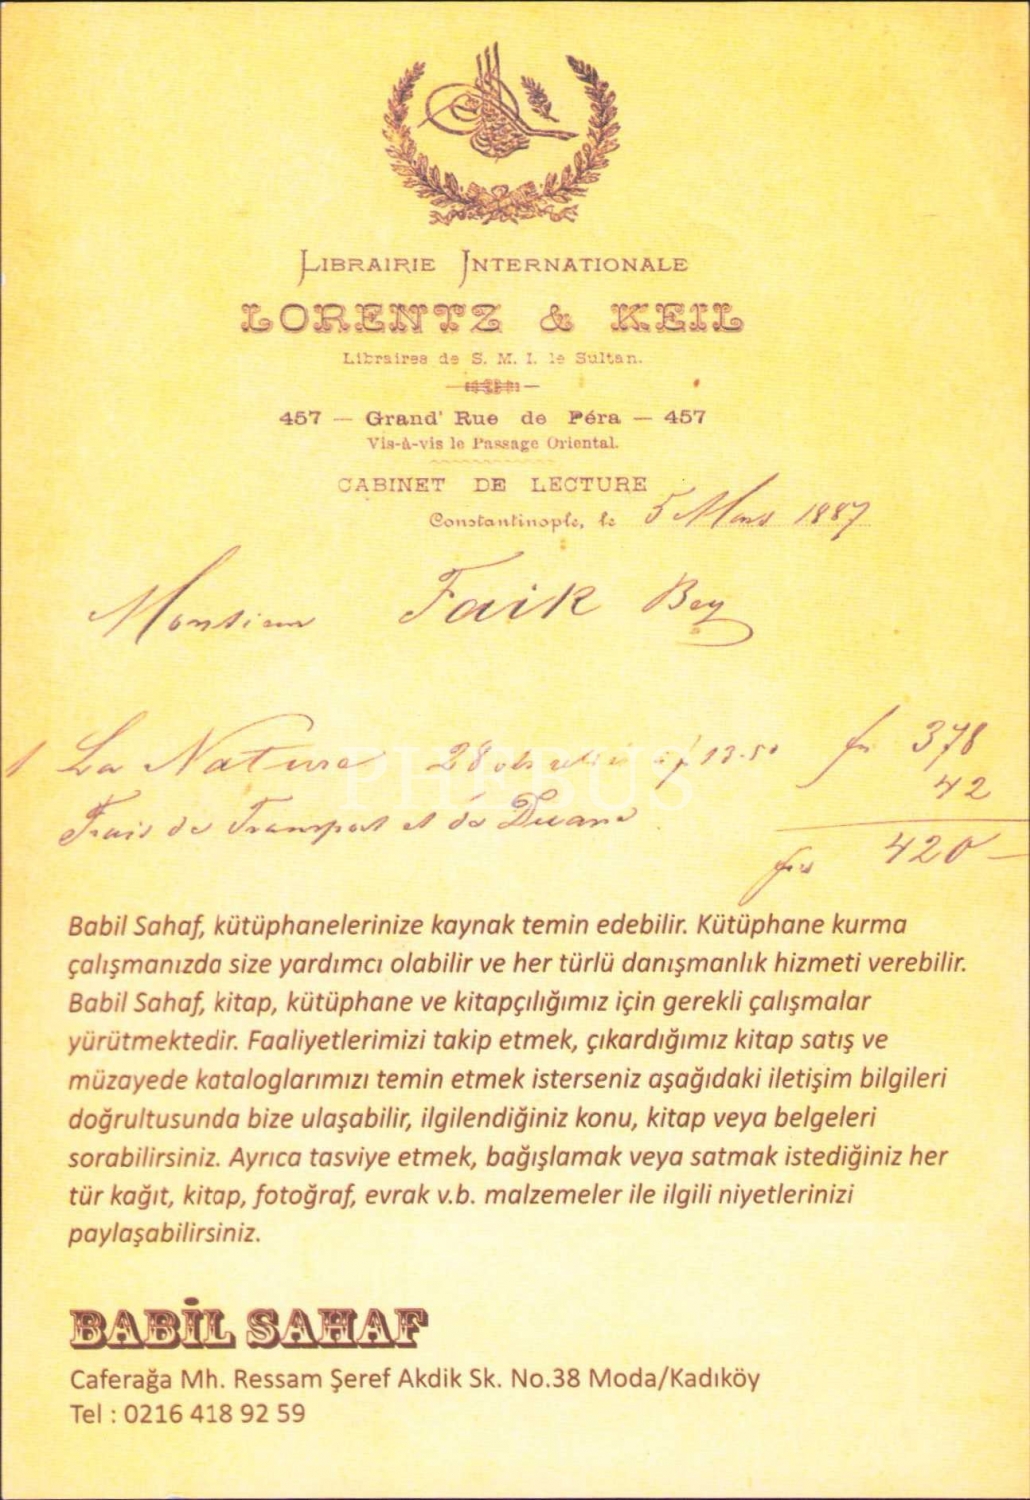 LIBRAIRIE INTERNATIONALE
LORENTZ & KEIL
Libraires de S. M. I. le Sultan.
457 — Grand' Rue de Péra — 457
Vis-à-vis le Passage Oriental.
CABINET DE LECTURE
Constantinople, le 5 Mars 1887
Monsieur Faik Bey
1 La Nature 28 vols à f 13.50 fr 378
Frais de Transport et de Duane 42
frcs 420 —
PHEBUS
Babil Sahaf, kütüphanelerinize kaynak temin edebilir. Kütüphane kurma
çalışmanızda size yardımcı olabilir ve her türlü danışmanlık hizmeti verebilir.
Babil Sahaf, kitap, kütüphane ve kitapçılığımız için gerekli çalışmalar
yürütmektedir. Faaliyetlerimizi takip etmek, çıkardığımız kitap satış ve
müzayede kataloglarımızı temin etmek isterseniz aşağıdaki iletişim bilgileri
doğrultusunda bize ulaşabilir, ilgilendiğiniz konu, kitap veya belgeleri
sorabilirsiniz. Ayrıca tasviye etmek, bağışlamak veya satmak istediğiniz her
tür kağıt, kitap, fotoğraf, evrak v.b. malzemeler ile ilgili niyetlerinizi
paylaşabilirsiniz.
BABİL SAHAF
Caferağa Mh. Ressam Şeref Akdik Sk. No.38 Moda/Kadıköy
Tel : 0216 418 92 59